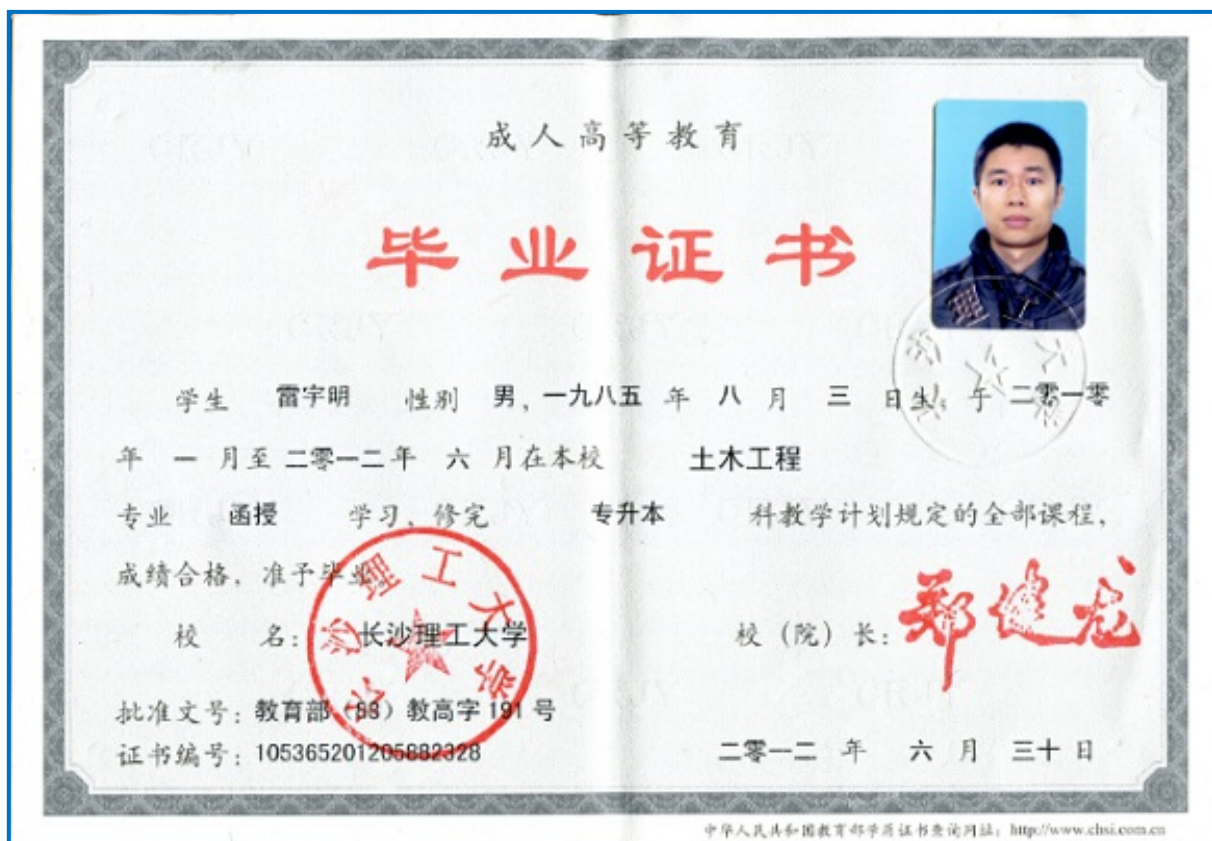 成人高等教育
毕业证书
学生 雷宇明 性别 男，一九八五 年 八 月 三 日生，于 二零一零
年 一 月至 二零一二年 六 月在本校 土木工程
专业 函授 学习，修完 专升本 科教学计划规定的全部课程，
成绩合格，准予毕业。
校 名：长沙理工大学 校（院）长：郑健龙
长沙理工大学
批准文号：教育部（83）教高字 191 号
证书编号：105365201205882328 二零一二 年 六 月 三十 日
中华人民共和国教育部学历证书查询网址：http://www.chsi.com.cn